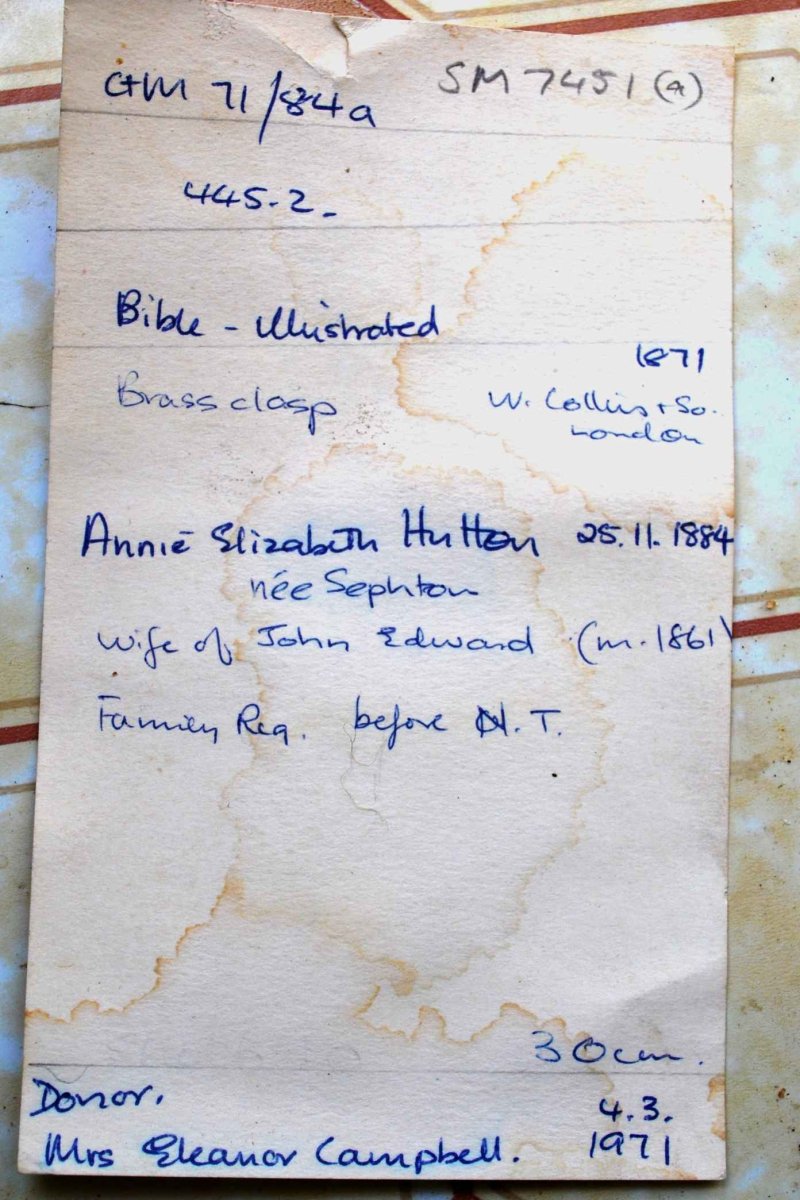 GM 71/84a SM 7451 (a)
445.2.
Bible - Illustrated
1871
Brass clasp W. Collins + So.
London
Annie Elizabeth Hutton 25.11.1884
née Sephton
wife of John Edward (m. 1861)
Family Reg. before N.T.
30cm.
Donor. 4.3.
Mrs Eleanor Campbell. 1971